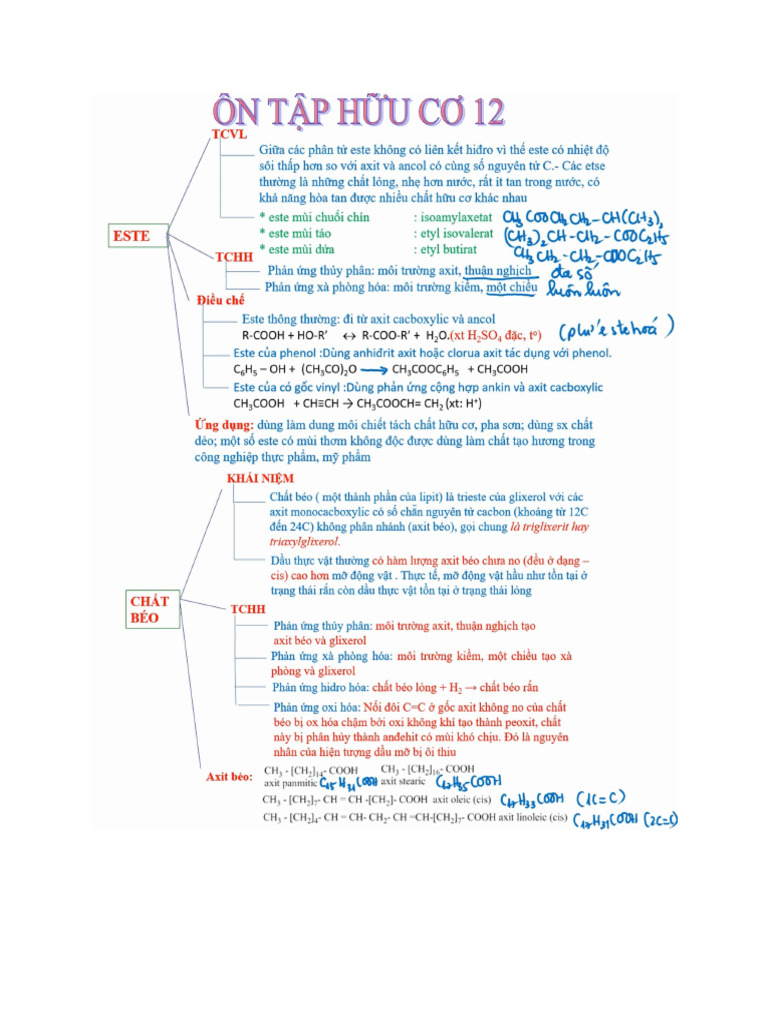 ÔN TẬP HỮU CƠ 12
TCVL
Giữa các phân tử este không có liên kết hiđro vì thế este có nhiệt độ
sôi thấp hơn so với axit và ancol có cùng số nguyên tử C.- Các etse
thường là những chất lỏng, nhẹ hơn nước, rất ít tan trong nước, có
khả năng hòa tan được nhiều chất hữu cơ khác nhau
* este mùi chuối chín : isoamylaxetat CH3COOCH2CH2-CH(CH3)2
ESTE
* este mùi táo : etyl isovalerat (CH3)2CH-CH2-COOC2H5
* este mùi dứa : etyl butirat CH3CH2-CH2-COOC2H5
TCHH
Phản ứng thủy phân: môi trường axit, thuận nghịch đa số
Phản ứng xà phòng hóa: môi trường kiềm, một chiều luôn luôn
Điều chế
Este thông thường: đi từ axit cacboxylic và ancol
R-COOH + HO-R’ ↔ R-COO-R’ + H2O.(xt H2SO4 đặc, t°) (pư este hoá)
Este của phenol :Dùng anhiđrit axit hoặc clorua axit tác dụng với phenol.
C6H5 – OH + (CH3CO)2O ⟶ CH3COOC6H5 + CH3COOH
Este của có gốc vinyl :Dùng phản ứng cộng hợp ankin và axit cacboxylic
CH3COOH + CH≡CH → CH3COOCH= CH2 (xt: H⁺)
Ứng dụng: dùng làm dung môi chiết tách chất hữu cơ, pha sơn; dùng sx chất
dẻo; một số este có mùi thơm không độc được dùng làm chất tạo hương trong
công nghiệp thực phẩm, mỹ phẩm
KHÁI NIỆM
Chất béo ( một thành phần của lipit) là trieste của glixerol với các
axit monocacboxylic có số chẵn nguyên tử cacbon (khoảng từ 12C
đến 24C) không phân nhánh (axit béo), gọi chung là triglixerit hay
triaxylglixerol.
Dầu thực vật thường có hàm lượng axit béo chưa no (đều ở dạng –
cis) cao hơn mỡ động vật . Thực tế, mỡ động vật hầu như tồn tại ở
trạng thái rắn còn dầu thực vật tồn tại ở trạng thái lỏng
CHẤT
BÉO
TCHH
Phản ứng thủy phân: môi trường axit, thuận nghịch tạo
axit béo và glixerol
Phản ứng xà phòng hóa: môi trường kiềm, một chiều tạo xà
phòng và glixerol
Phản ứng hidro hóa: chất béo lỏng + H2 → chất béo rắn
Phản ứng oxi hóa: Nối đôi C=C ở gốc axit không no của chất
béo bị ox hóa chậm bởi oxi không khí tạo thành peoxit, chất
này bị phân hủy thành anđehit có mùi khó chịu. Đó là nguyên
nhân của hiện tượng dầu mỡ bị ôi thiu
Axit béo:
CH3 - [CH2]14- COOH CH3 - [CH2]16- COOH
axit panmitic C15H31COOH axit stearic C17H35COOH
CH3 - [CH2]7- CH = CH -[CH2]- COOH axit oleic (cis) C17H33COOH (1C=C)
CH3 - [CH2]4- CH = CH- CH2- CH =CH-[CH2]7- COOH axit linoleic (cis) C17H31COOH (2C=C)